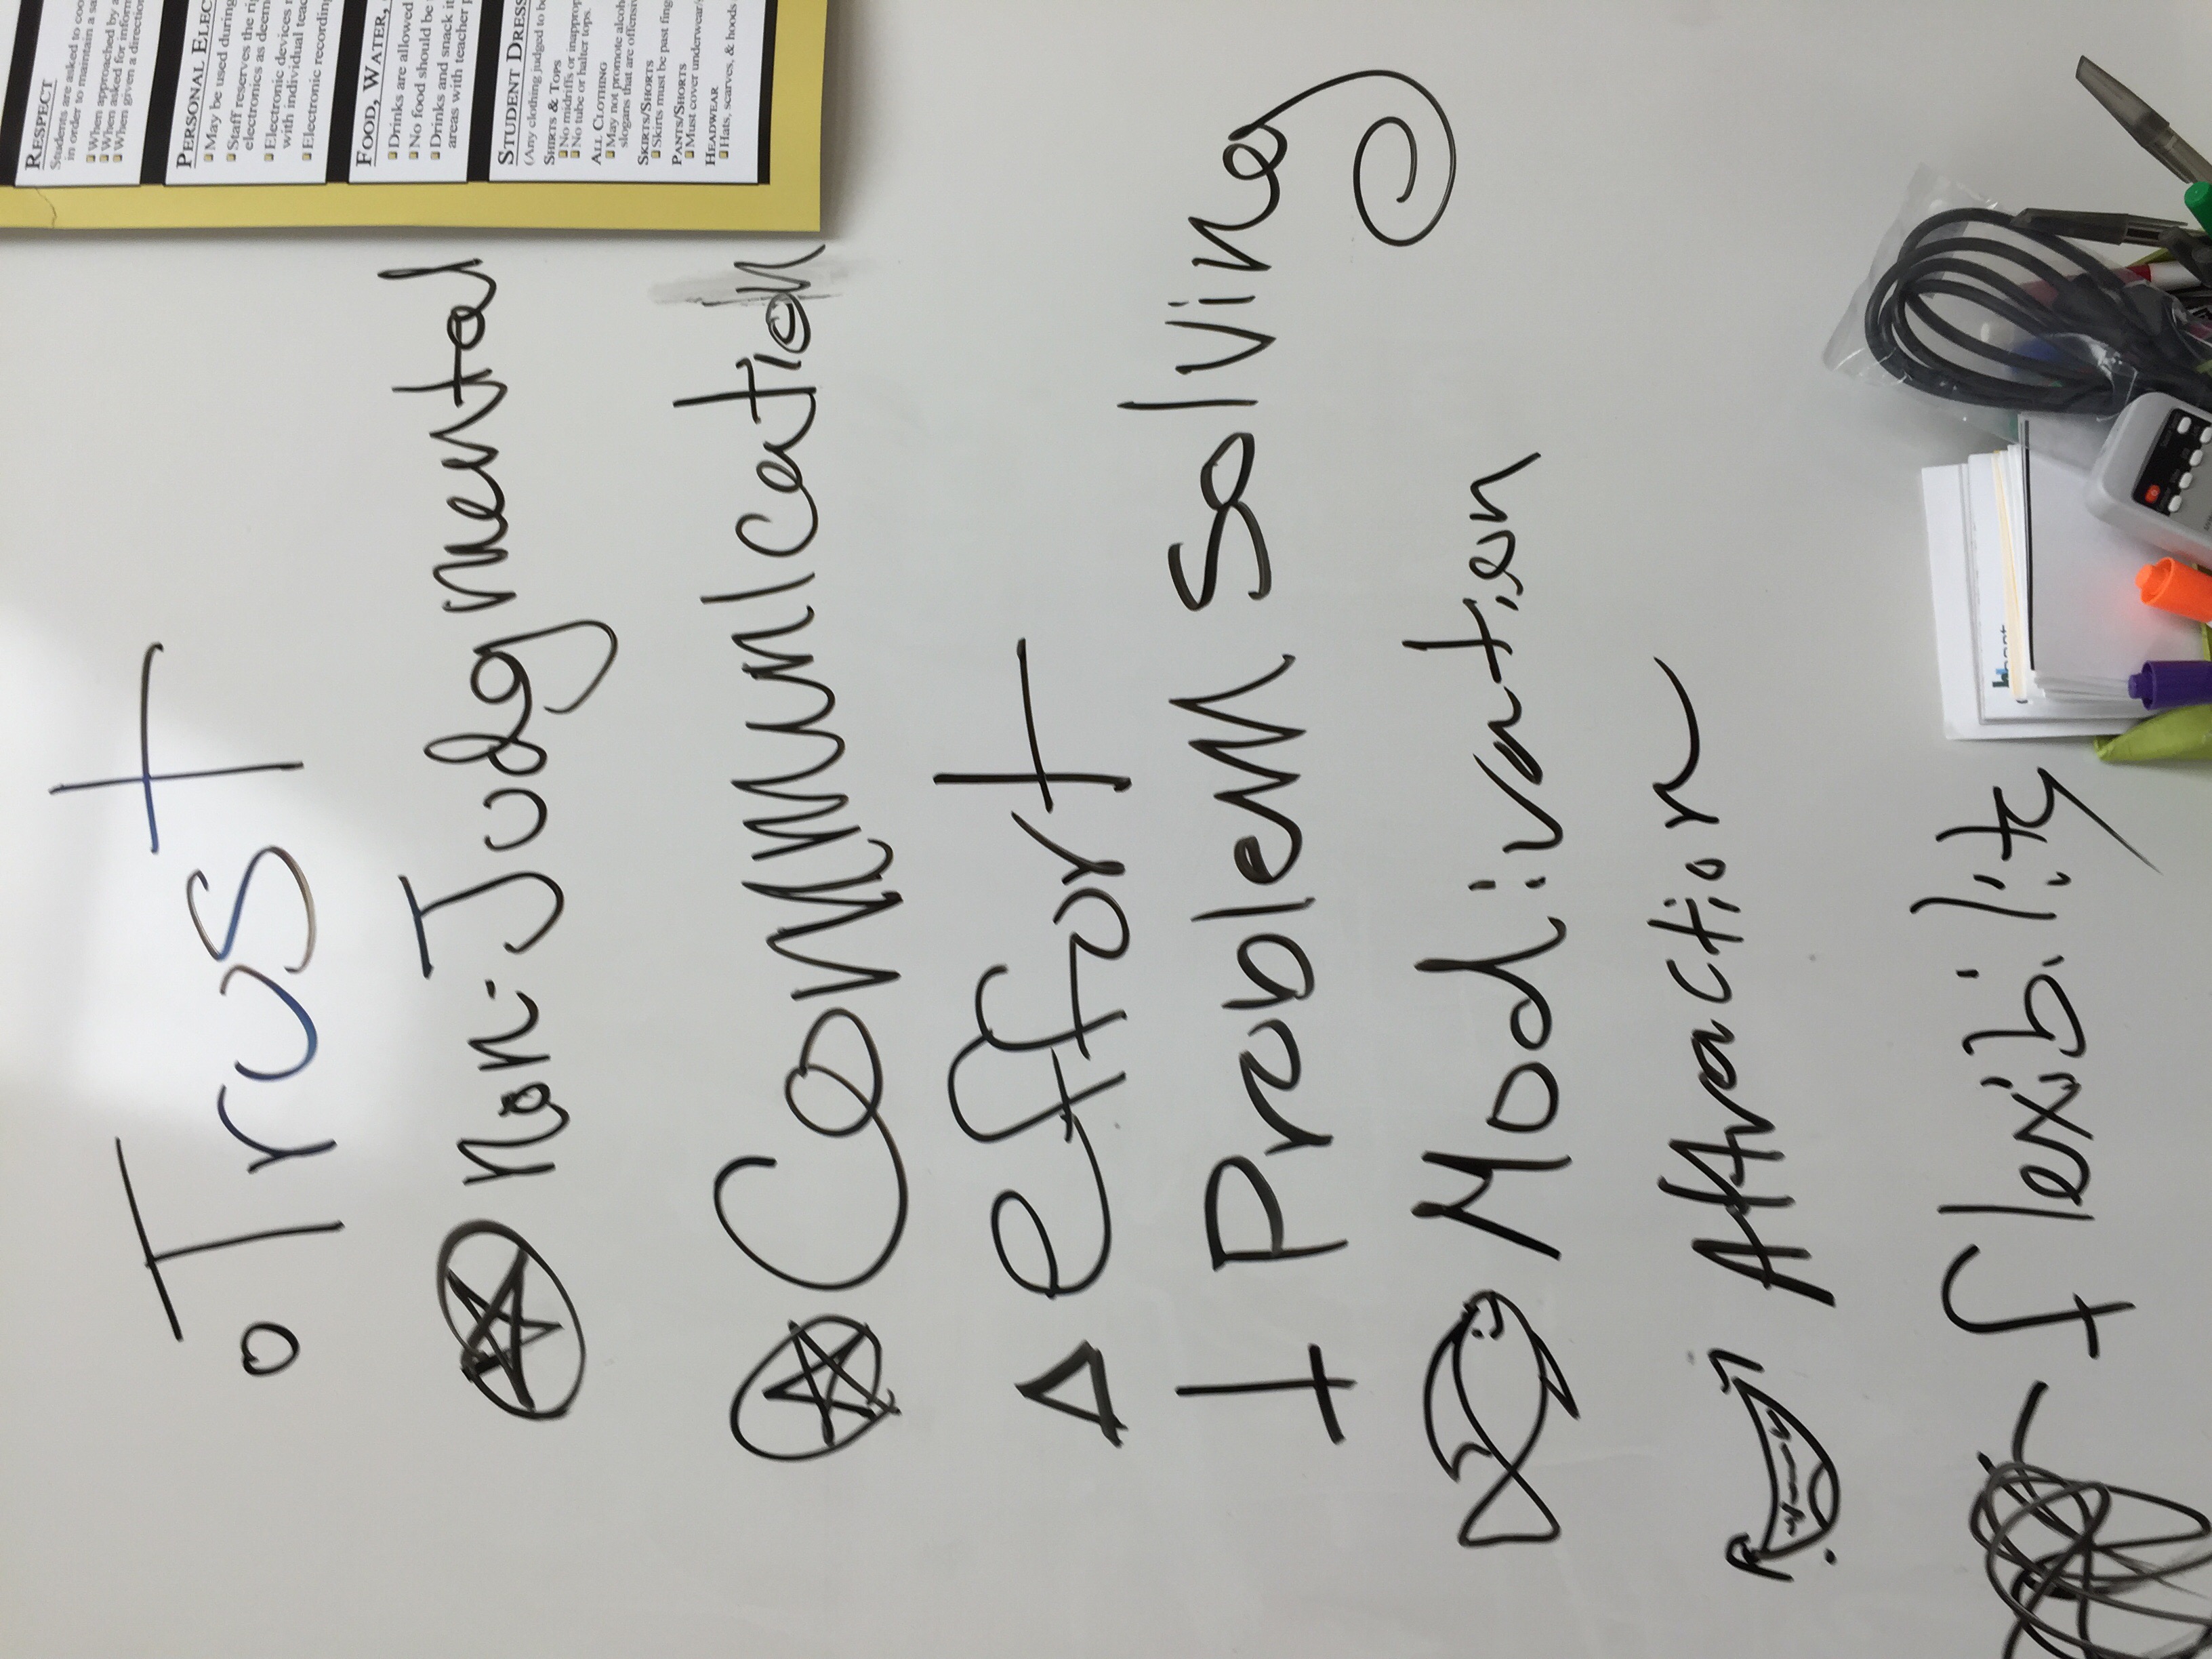 RESPECT
Students are asked to coo
in order to maintain a sa
When approached by a
When asked for inform
When given a direction
PERSONAL ELEC
May be used during
Staff reserves the ri
electronics as deem
Electronic devices
with individual teac
Electronic recording
FOOD, WATER,
Drinks are allowed
No food should be
Drinks and snack it
areas with teacher p
STUDENT DRESS
(Any clothing judged to be
SHIRTS & TOPS
No midriffs or inapprop
No tube or halter tops.
ALL CLOTHING
May not promote alcoh
slogans that are offensiv
SKIRTS/SHORTS
Skirts must be past fing
PANTS/SHORTS
Must cover underwear/
HEADWEAR
Hats, scarves, & hoods
Trust
Non-Judgmental
Communication
effort
Problem Solving
Modivation
Attraction
flexibility